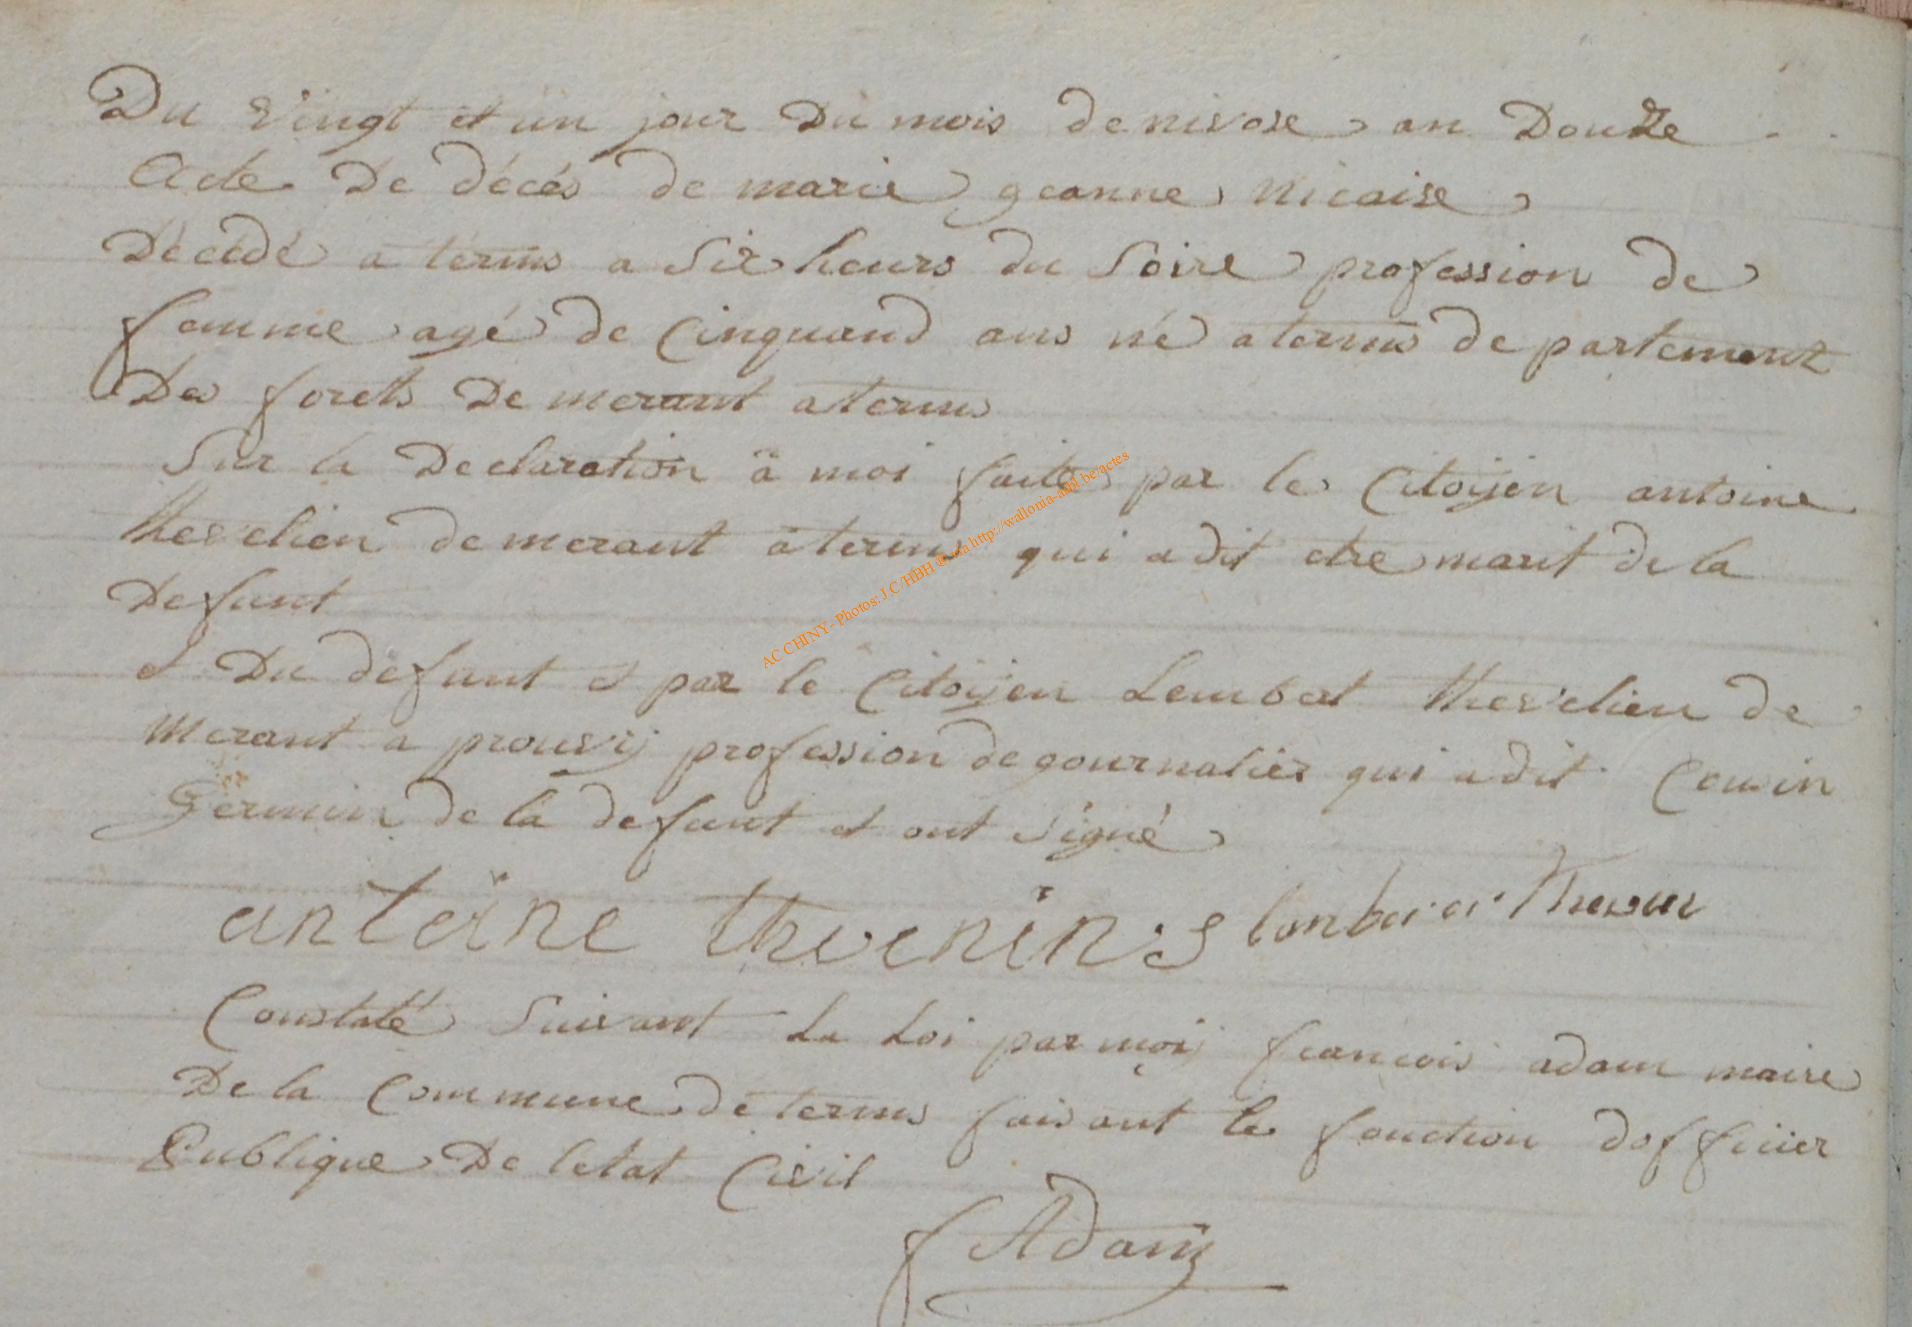 Du vingt et un jour du mois de nivose an Douze
Acte De décés de marie geanne nicaise
Décédé a terms a six heurs du soire profession de
famme agé de Cinquand ans né a termes departement
Des forets Demerant a termes
Sur la Declaration à moi faite par le Citoÿen antoine
thevelien demerant a termes qui a dit etre marit de la
Defunt
et Du defunt et par le Citoÿen Lembert thevelien de
merant a prouvÿ profession de gournalier qui a dit Cousin
Germin de la defunt et ont signé
antoine thvenin
Constaté Suivant La Loi par moi francois adam maire
De la Commune de termes faisant le fonction dofficier
Publique De letat Civil
f Adam
AC CHINY - Photos: J.C HBH @ via http://wallonia-asbl.be/actes